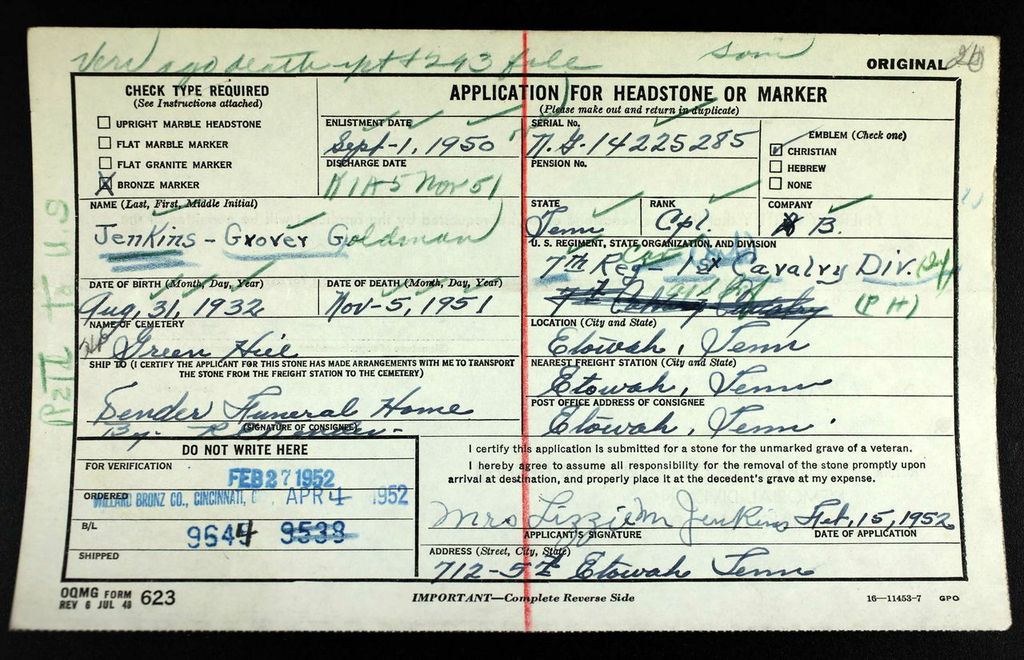 death rpt & 293 file son
ORIGINAL
CHECK TYPE REQUIRED
(See Instructions attached)
UPRIGHT MARBLE HEADSTONE
FLAT MARBLE MARKER
FLAT GRANITE MARKER
BRONZE MARKER
APPLICATION FOR HEADSTONE OR MARKER
(Please make out and return in duplicate)
ENLISTMENT DATE
Sept-1, 1950
DISCHARGE DATE
KIA 5 Nov 51
SERIAL No.
14225285
PENSION No.
EMBLEM (Check one)
CHRISTIAN
HEBREW
NONE
NAME (Last, First, Middle Initial)
Jenkins - Grover Goldman
STATE
Tenn
RANK
Cpl.
COMPANY
B.
U. S. REGIMENT, STATE ORGANIZATION, AND DIVISION
7th Reg- 1st Cavalry Div.
(PH)
DATE OF BIRTH (Month, Day, Year)
Aug, 31, 1932
DATE OF DEATH (Month, Day, Year)
Nov-5, 1951
NAME OF CEMETERY
Green Hill
LOCATION (City and State)
Etowah, Tenn
SHIP TO (I CERTIFY THE APPLICANT FOR THIS STONE HAS MADE ARRANGEMENTS WITH ME TO TRANSPORT
THE STONE FROM THE FREIGHT STATION TO THE CEMETERY)
Sender Funeral Home
By-
(SIGNATURE OF CONSIGNEE)
NEAREST FREIGHT STATION (City and State)
Etowah, Tenn
POST OFFICE ADDRESS OF CONSIGNEE
Etowah, Tenn.
DO NOT WRITE HERE
FOR VERIFICATION
FEB 27 1952
ORDERED
WILLARD BRONZ CO., CINCINNATI, APR 4 1952
B/L
9644 9538
SHIPPED
I certify this application is submitted for a stone for the unmarked grave of a veteran.
I hereby agree to assume all responsibility for the removal of the stone promptly upon
arrival at destination, and properly place it at the decedent's grave at my expense.
Mrs Lizzie M Jenkins Feb, 15, 1952
APPLICANT'S SIGNATURE DATE OF APPLICATION
ADDRESS (Street, City, State)
712-5th Etowah Tenn
OQMG FORM
REV 6 JUL 48 623
IMPORTANT—Complete Reverse Side
16—11453-7 GPO